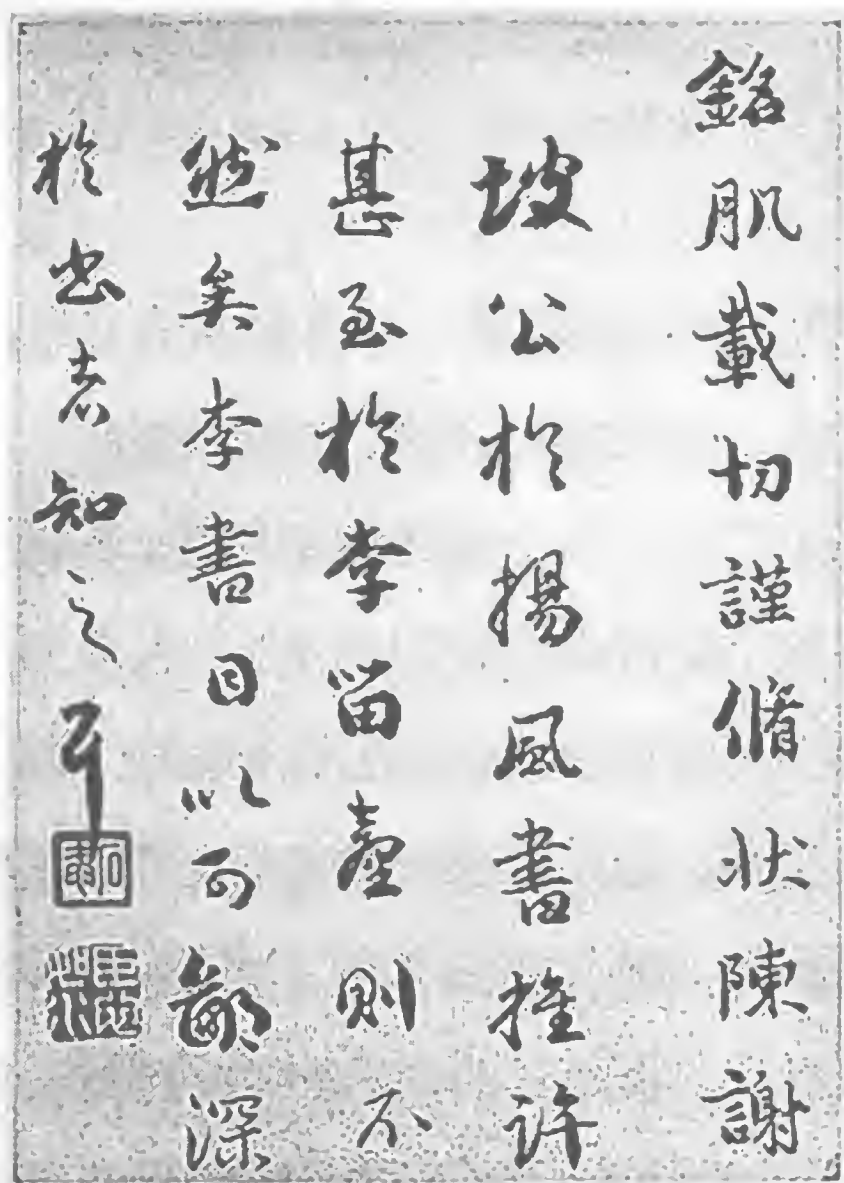 銘肌載切謹脩狀陳謝
坡公於楊風書推許
甚至於李留臺則不
然矣李書目以可鄙深
於書者知之